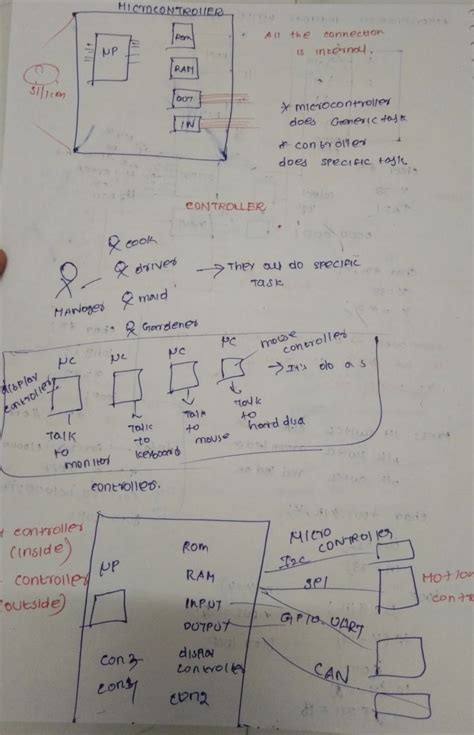 MICROCONTROLLER
MP
Rom
RAM
OUT
IN
All the connection
is internal.
* microcontroller
does Generic task
* controller
does specific task
CONTROLLER
cook
driver
maid
Gardener
MANager
→ They all do specific
Task
MC
MC
MC
MC
mouse
controller
display
controller
→ It's do a s
Talk
to
monitor
Talk
to
keyboard
Talk
to
mouse
Talk
to
controller.
controller
(inside)
controller
outside)
MP
Rom
RAM
INPUT
OUTPUT
display
controller
con3
con2
MICRO
CONTROLLER
I2C
SPI
GPIO, UART
CAN
Motion
contr